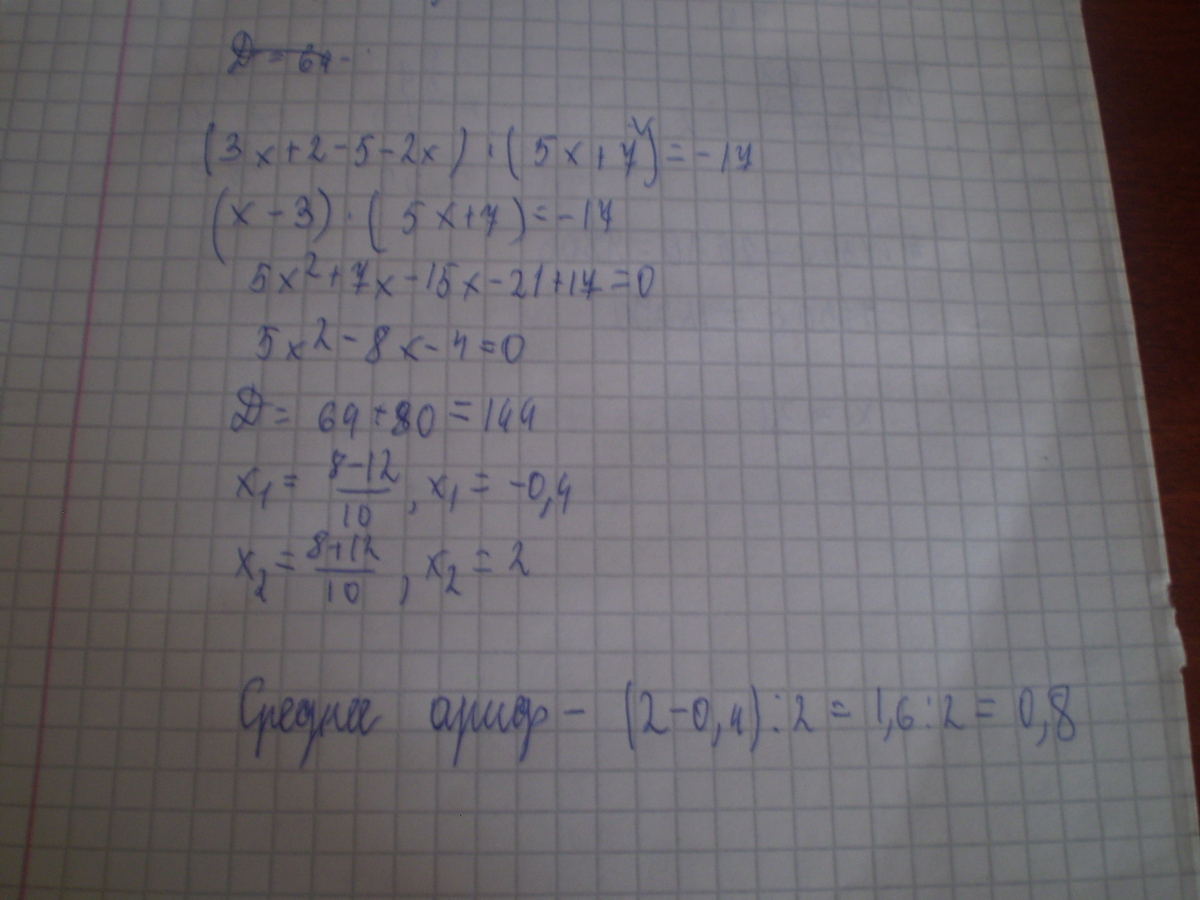 D = 64 -
(3x+2-5-2x)·(5x+7)=-17
(x-3)·(5x+7)=-17
5x²+7x-15x-21+17=0
5x²-8x-4=0
D= 64+80=144
x₁= 8-12/10, x₁= -0,4
x₂= 8+12/10, x₂= 2
Среднее ариф - (2-0,4):2=1,6:2=0,8